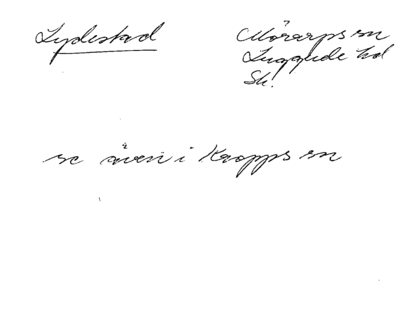 Lydestad
Mörarps sn
Luggude hd
Sk.
se även i Kropps sn